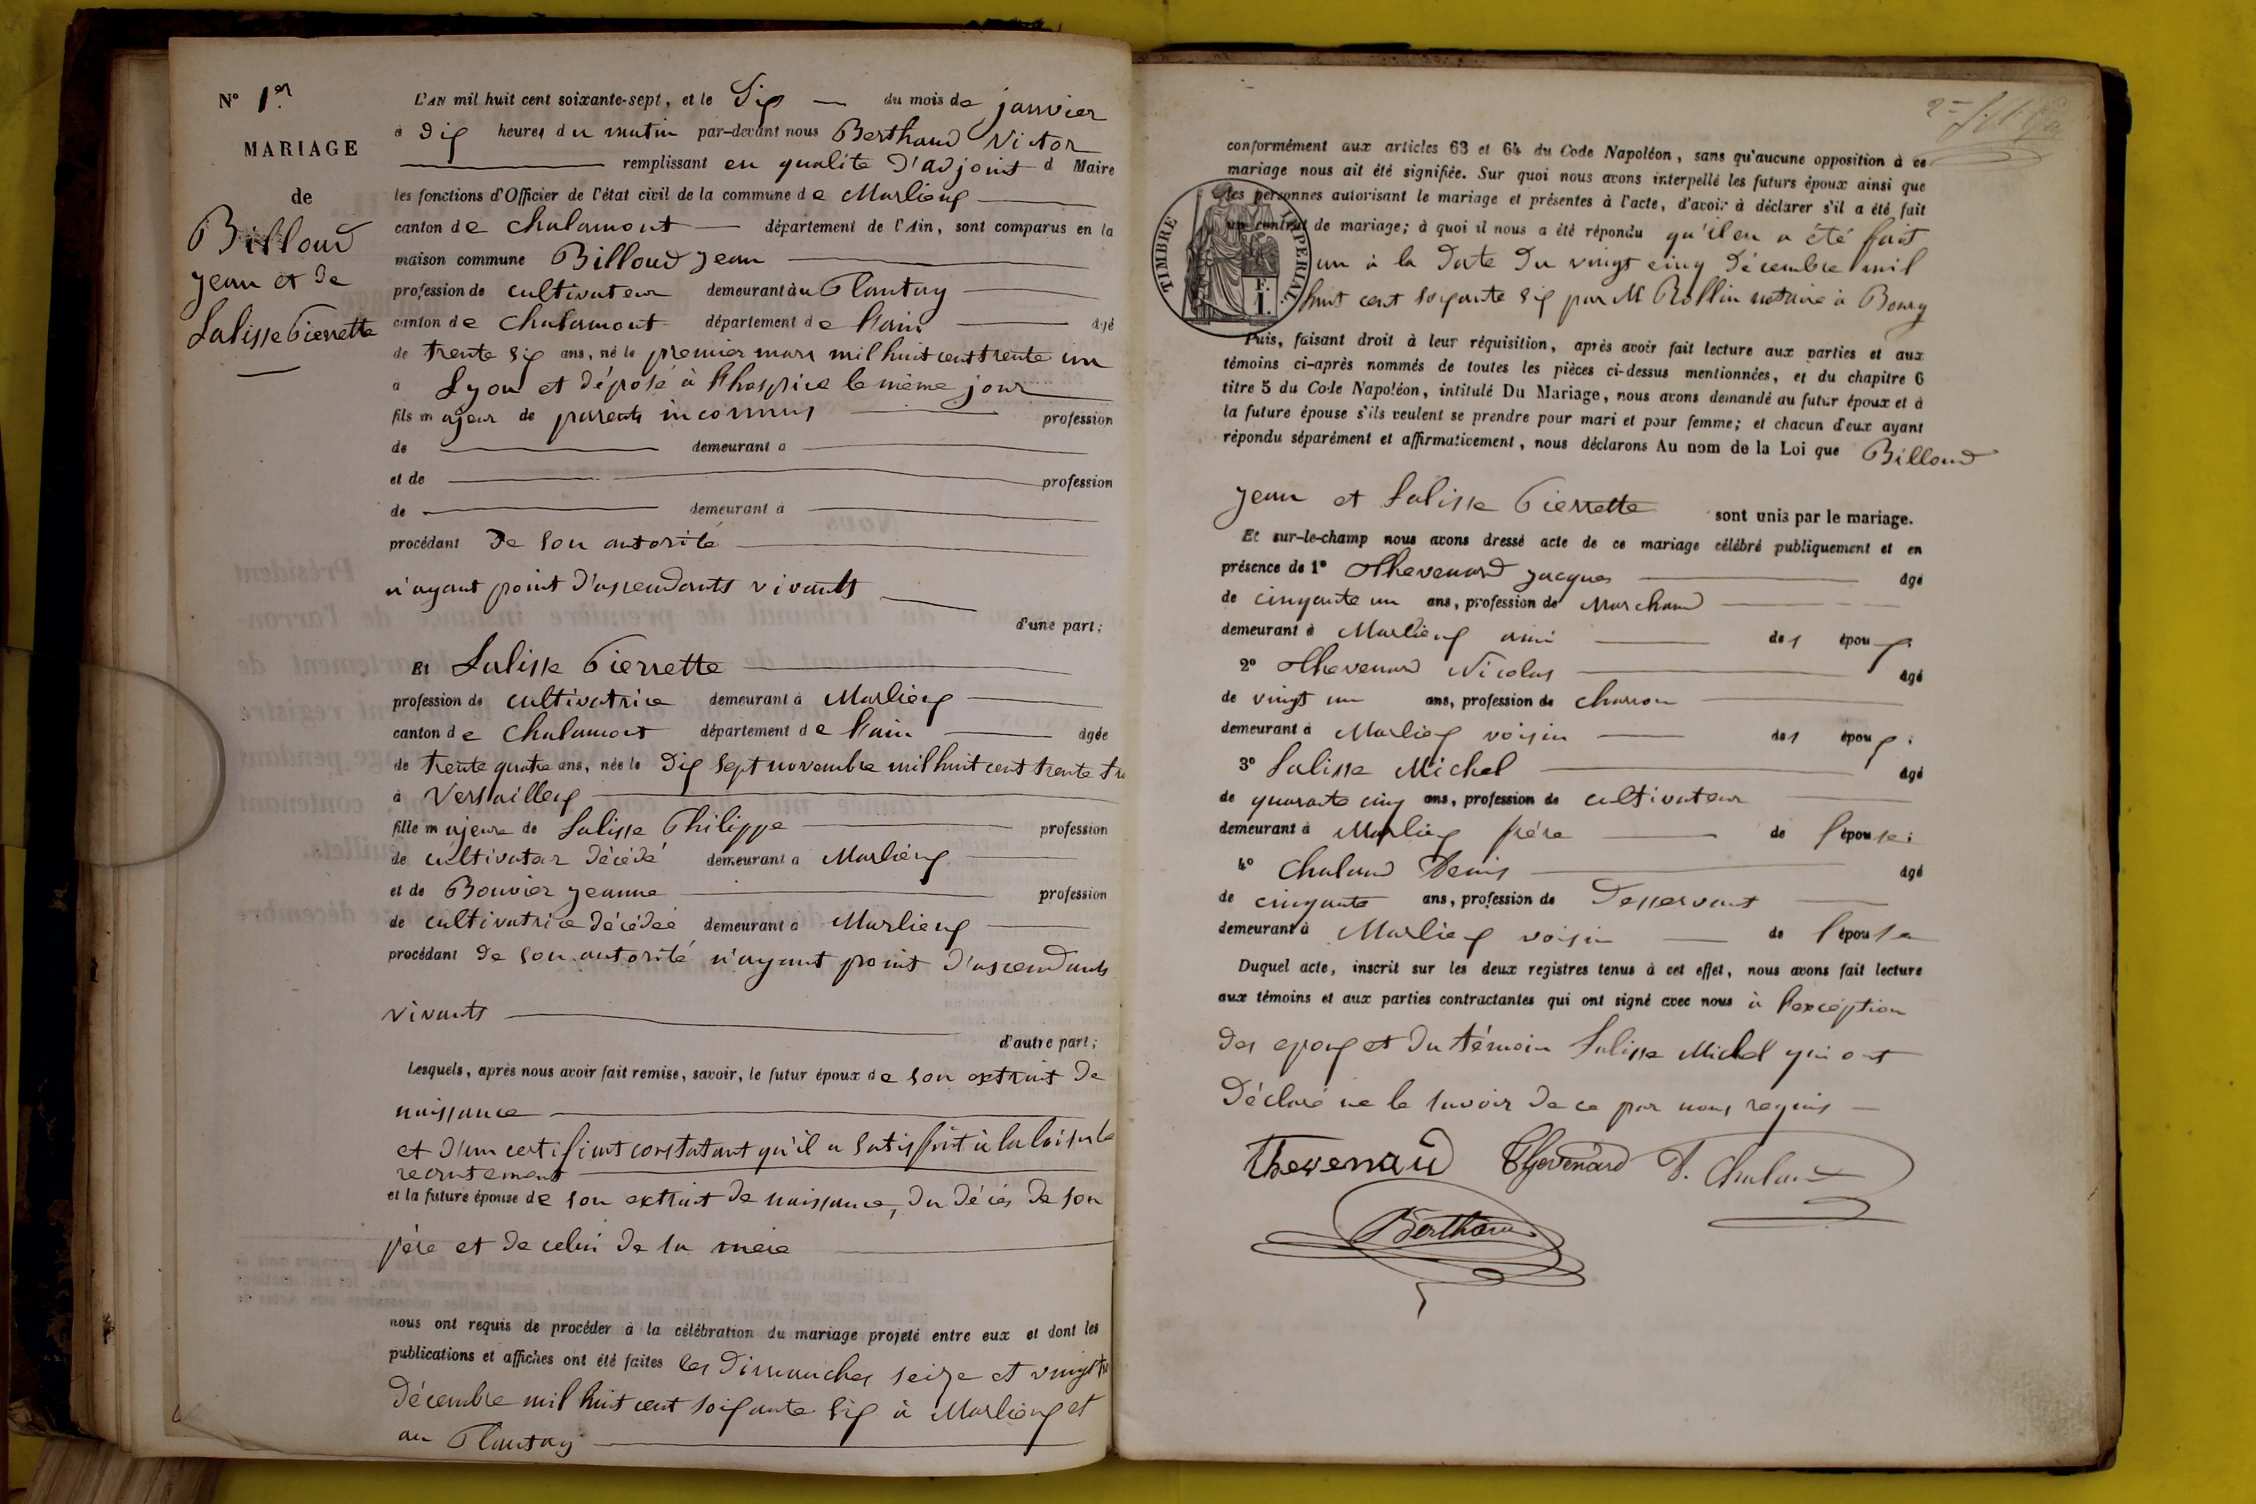 N° 1er
MARIAGE
de
Billoud
Jean et de
Lalisse Pierrette
L'AN mil huit cent soixante-sept, et le Dix du mois de janvier
à Dix heures du matin par-devant nous Berthaud Victor
remplissant en qualité D'adjoint d Maire
les fonctions d'Officier de l'état civil de la commune de Marlieux
canton de Chalamont département de l'Ain, sont comparus en la
maison commune Billoud Jean
profession de cultivateur demeurant à u Plantay
canton de Chalamont département de l'ain âgé
de trente six ans, né le premier mars mil huit cent trente un
à Lyon et déposé à l'hospice le même jour
fils majeur de parents inconnus profession
de demeurant à
et de profession
de demeurant à
procédant De son autorité
n'ayant point D'ascendants vivants
d'une part;
Et Lalisse Pierrette
profession de cultivatrice demeurant à Marlieux
canton de Chalamont département de l'ain âgée
de trente quatre ans, née le Dix sept novembre mil huit cent trente
à Versailleux
fille majeure de Lalisse Philippe profession
de cultivateur décédé demeurant à Marlieux
et de Bouvier Jeanne profession
de cultivatrice décédée demeurant à Marlieux
procédant de son autorité n'ayant point D'ascendants
vivants
d'autre part;
Lesquels, après nous avoir fait remise, savoir, le futur époux de son extrait de
naissance
et D'un certificat constatant qu'il a satisfait à la loi sur le
recrutement
et la future épouse de son extrait de naissance, du décès de son
père et de celui de sa mère
nous ont requis de procéder à la célébration du mariage projeté entre eux et dont les
publications et affiches ont été faites les Dimanches seize et vingt
Décembre mil huit cent soixante six à Marlieux et
au Plantay
conformément aux articles 63 et 64 du Code Napoléon, sans qu'aucune opposition à ce
mariage nous ait été signifiée. Sur quoi nous avons interpellé les futurs époux ainsi que
les personnes autorisant le mariage et présentes à l'acte, d'avoir à déclarer s'il a été fait
un contrat de mariage; à quoi il nous a été répondu qu'il en a été fait
un à la Date Du vingt cinq Décembre mil
huit cent soixante six par M Rollin notaire à Bourg
TIMBRE IMPERIAL
F.
1.
Puis, faisant droit à leur réquisition, après avoir fait lecture aux parties et aux
témoins ci-après nommés de toutes les pièces ci-dessus mentionnées, et du chapitre 6
titre 5 du Code Napoléon, intitulé Du Mariage, nous avons demandé au futur époux et à
la future épouse s'ils veulent se prendre pour mari et pour femme; et chacun d'eux ayant
répondu séparément et affirmativement, nous déclarons Au nom de la Loi que Billoud
Jean et Lalisse Pierrette sont unis par le mariage.
Et sur-le-champ nous avons dressé acte de ce mariage célébré publiquement et en
présence de 1° Thevenard Jacques âgé
de cinquante un ans, profession de Marchand
demeurant à Marlieux ami des époux;
2° Thevenard Nicolas âgé
de vingt un ans, profession de charron
demeurant à Marlieux voisin des époux;
3° Lalisse Michel âgé
de quarante cinq ans, profession de cultivateur
demeurant à Marlieux frère de l'épouse;
4° Chaland Denis âgé
de cinquante ans, profession de Desservant
demeurant à Marlieux voisin de l'épouse
Duquel acte, inscrit sur les deux registres tenus à cet effet, nous avons fait lecture
aux témoins et aux parties contractantes qui ont signé avec nous à l'exception
Des epoux et Du témoin Lalisse Michel qui ont
Déclaré ne le savoir De ce par nous requis
Thevenard Thevenard D. Chaland
Berthaud